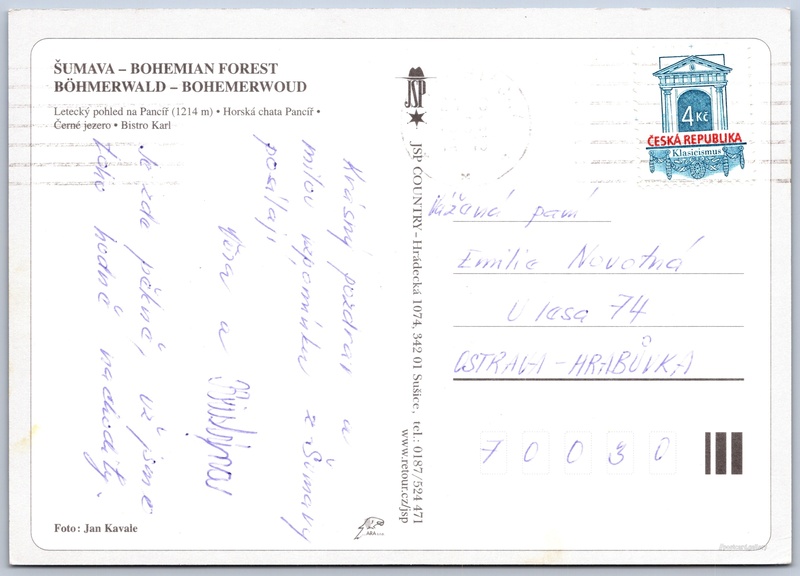 ŠUMAVA – BOHEMIAN FOREST
BÖHMERWALD – BOHEMERWOUD
Letecký pohled na Pancíř (1214 m) • Horská chata Pancíř •
Černé jezero • Bistro Karl
Krásný pozdrav a
milou vzpomínku z Šumavy
posílají
Věra a
Je zde pěkně, už jsme
toho hodně nachodily.
Foto: Jan Kavale
JSP
JSP COUNTRY – Hrádecká 1074, 342 01 Sušice, tel.: 0187/524 471
www.retour.cz/jsp
4 Kč
ČESKÁ REPUBLIKA
Klasicismus
Vážená paní
Emilie Novotná
U lesa 74
OSTRAVA – HRABŮVKA
7 0 0 3 0